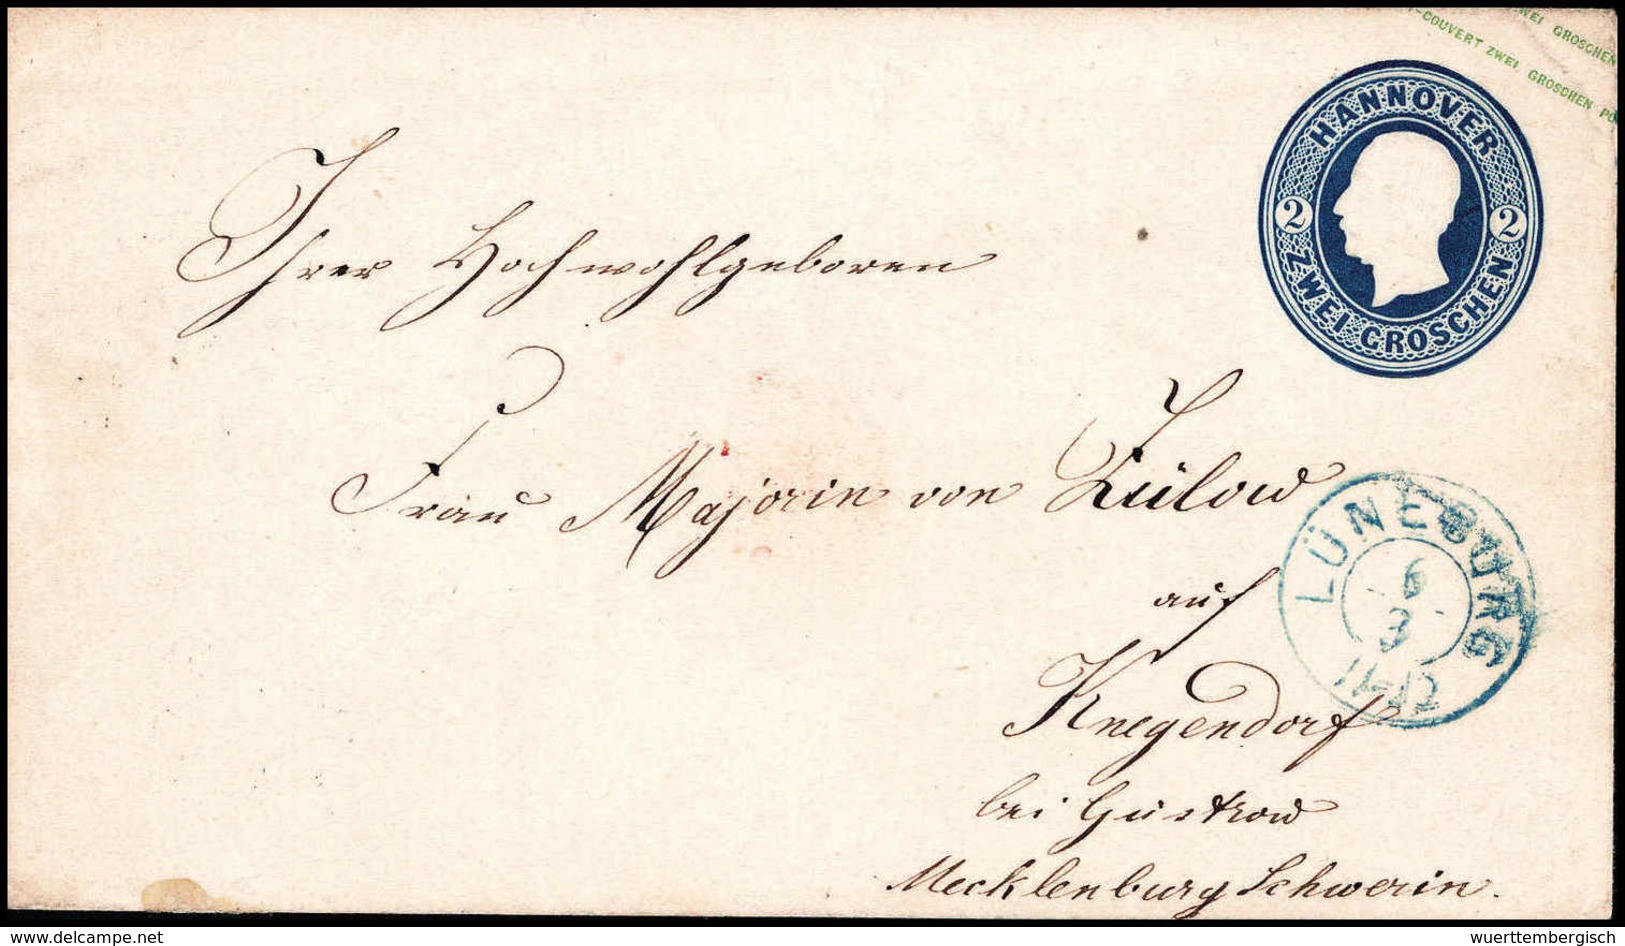 WEI GROSCHEN
-COUVERT ZWEI GROSCHEN PO
HANNOVER
2 2
ZWEI GROSCHEN
Ihrer Hochwohlgeboren
Frau Majorin von Lülow
auf
Knegendorf
bei Gustrow
Mecklenburg Schwerin.
LÜNEBURG
6
3
delcampe.net
wuerttembergisch